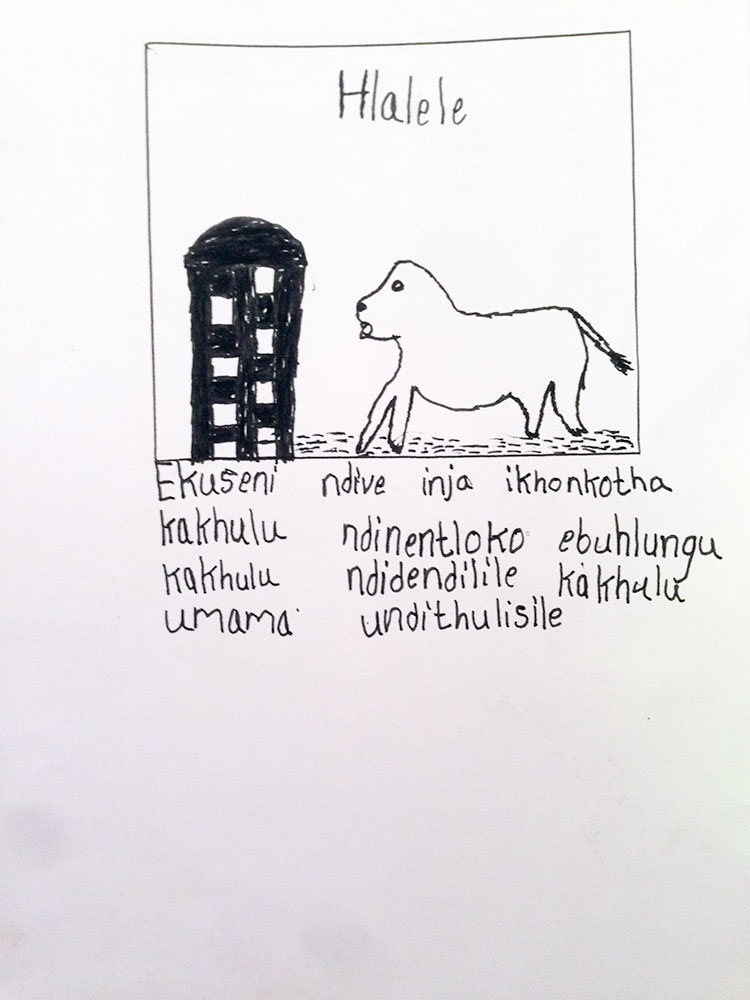 Hlalele
Ekuseni ndive inja ikhonkotha
kakhulu ndinentloko ebuhlungu
kakhulu ndidendilile kakhulu
umama undithulisile